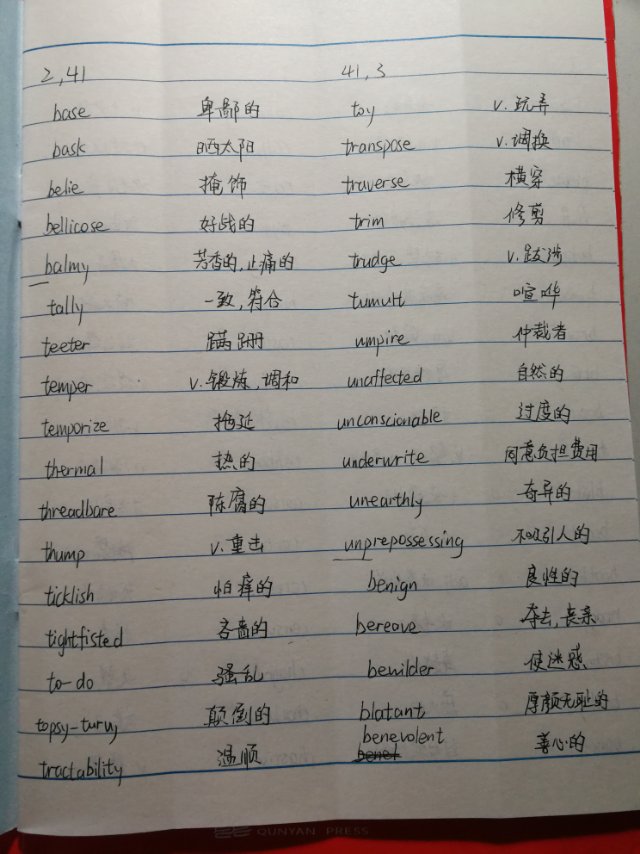 2,41 41,3
base 卑鄙的 toy v.玩弄
bask 晒太阳 transpose v.调换
belie 掩饰 traverse 横穿
bellicose 好战的 trim 修剪
balmy 芳香的,止痛的 trudge v.跋涉
tally 一致,符合 tumult 喧哗
teeter 蹒跚 umpire 仲裁者
temper v.锻炼,调和 unaffected 自然的
temporize 拖延 unconscionable 过度的
thermal 热的 underwrite 同意负担费用
threadbare 陈腐的 unearthly 奇异的
thump v.重击 unprepossessing 不吸引人的
ticklish 怕痒的 benign 良性的
tightfisted 吝啬的 bereave 夺去,丧亲
to-do 骚乱 bewilder 使迷惑
topsy-turvy 颠倒的 blatant 厚颜无耻的
tractability 温顺 benevolent 善心的
benet
QUNYAN PRESS